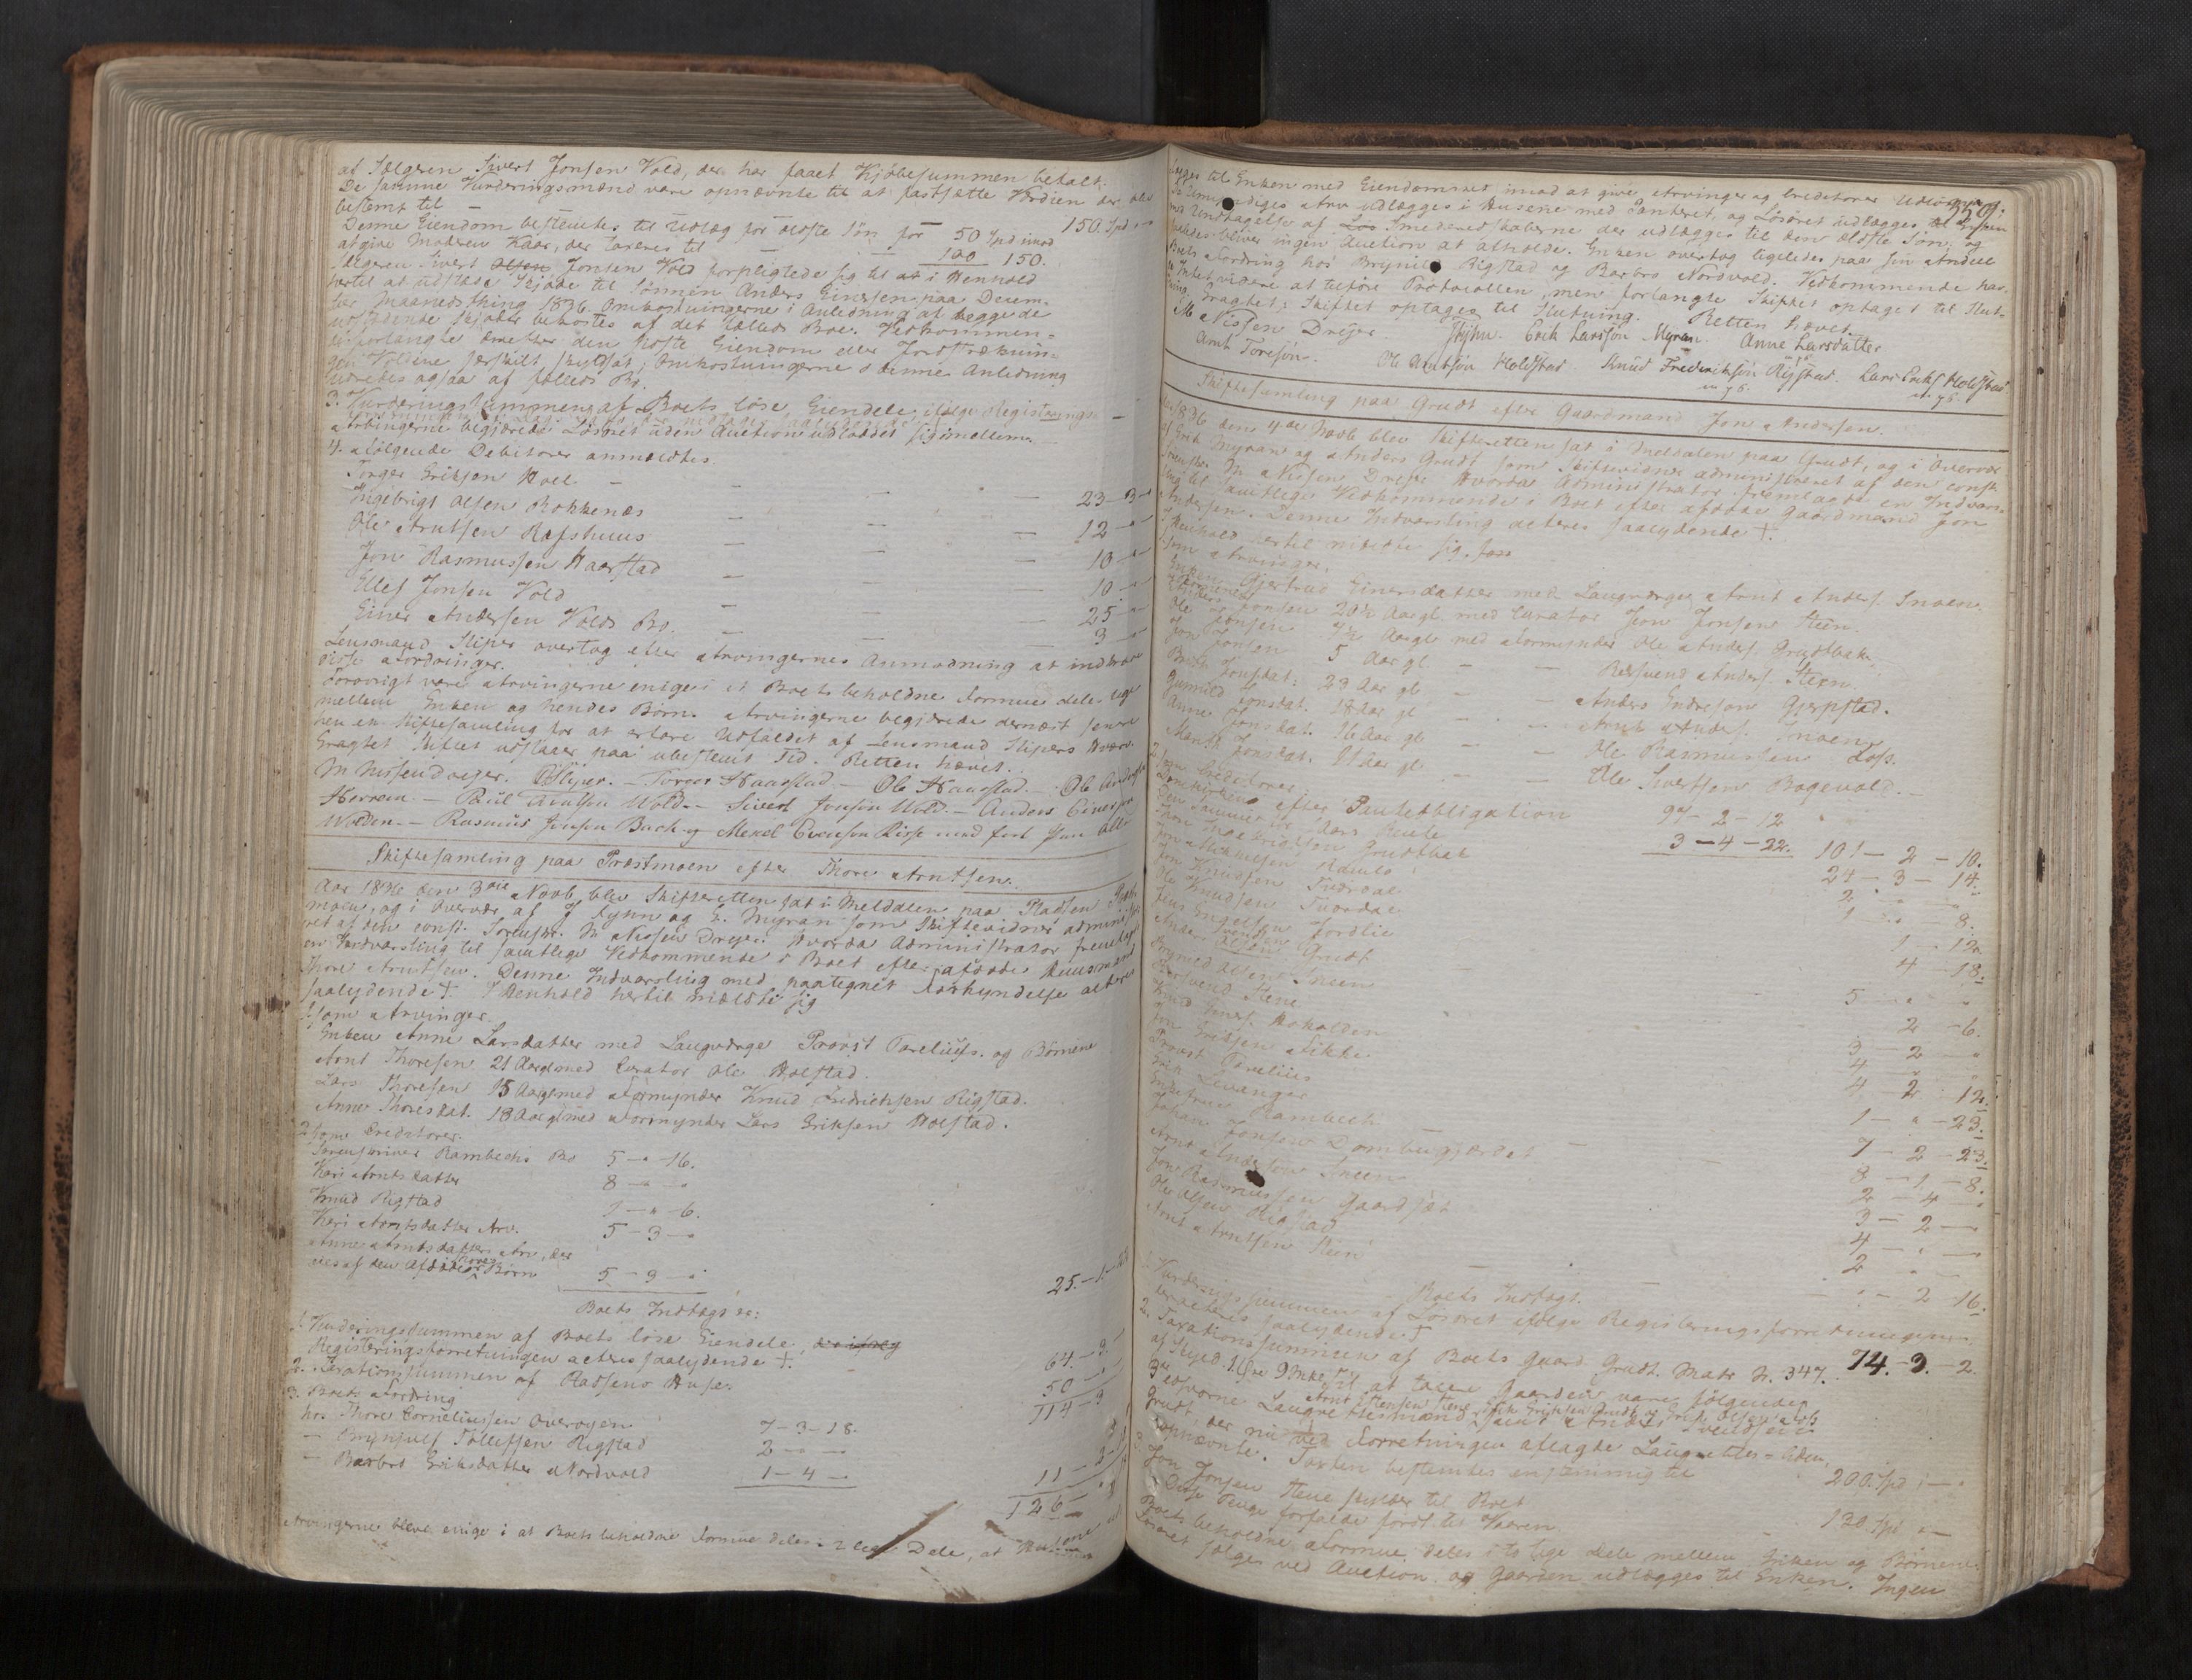 af Sælgeren Sivert Jonsen Vold, der har faaet Kjöbesummen betalt.
De samme Vurderingsmænd vare opnævnte til at fastsætte Værdien der blev
bestemt til — 150 Spd
Denne Eiendom bestemtes til Udlæg for ældste Sön for 50 Spd imod
at give Moderen Kaar, der taxeres til — 100 150.
Sælgeren Sivert Olsen Jonsen Vold forpligtede sig til at i Henhold
hertil at udstæde Skjöde til Sönnen Anders Einersen paa Decem-
ber Maanedsthing 1836. Omkostningerne i Anledning af begge de
udstædende Skjöder bekostes af det fælleds Boe. Vedkommen-
de forlangte
udredes ogsaa af fælleds Bo.
3. Vurderingssummen af Boets löse Eiendele ifölge Registerings
Arvingerne begjærede Lösöret uden Auction udloddet sig imellem.
4. Fölgende Debitorer anmeldtes.
Torger Eriksen Hoel — 23-3-
Ingebrigt Olsen Rokkenæs — 12 - -
Ole Arntsen Rafshuus — 10 - -
Jon Rasmussen Haarstad — 10 - -
Ellef Jonsen Vold — 25 - -
Einer Andersen Volds Bo. — 3 - -
Lensmand Sliper overtog efter Arvingernes Anmodning at inddrive
disse Fordringer.
Forövrigt vare Arvingerne enige i at Boets beholdne Formue deles lige
mellem Enken og hendes Börn. Arvingerne begjærede dernæst senere
hen en Skiftesamling for at erfare Udfaldet af Lensmand Slipers
Eragtet Skiftet udstaaer paa ubestemt Tid. Retten hævet.
M Nissen Dreyer. Sliper. — Torger Haarstad — Ole Haarstad — Ole
Herrem. — Paul Arntsen Wold. — Sivert Jonsen Wold. — Anders Einersen
Wolden. — Rasmus Jonsen Bach og Mekel Evensen Risse med fört Pen
Skiftesamling paa Præstmoen efter Thore Arntsen.
Aar 1836 den 3die Novb. blev Skifteretten sat i Meldalen paa Pladsen Præst-
moen, og i Overvær af J Ryhn og E. Myran som Skiftevidner administre-
ret af den const. Sorenskr. M Nissen Dreyer. Hvorda Administrator fremlagde
en Indvarsling til samtlige Vedkommende i Boet efter afdöde Huusmand
Thore Arntsen. Denne Indvarsling med paategnet Forkyndelse acteres
saalydende †. I Henhold hertil meldte sig
1. som Arvinger.
Enken Anne Larsdatter med Laugværge Provst Tareliuss. og Börnene
Arnt Thoresen 21 Aar gl med Curator Ole Hoelstad.
Lars Thoresen 15 Aar gl med Formynder Knud Fredriksen Rigstad.
Anne Thoresdat. 18 Aar gl med Formynder Lars Eriksen Hoelstad.
2. som Creditorer.
Sorenskriver Rambechs Bo 5 - " - 16.
Kari Arntsdatter 8 - " - "
Knud Rigstad 1 - " - 6.
Kari Arntsdatter Arv. 5 - 3 - "
Anne Arntsdatters Arv, der
ies af den Afdödes Börn 5 - 3 - "
25. - 1 - 22
Boets Indtægter:
1. Vurderingssummen af Boets löse Eiendele,
Registeringsforretningen acteres saalydende †. 64. - 3 -
2. Taxationssummen af Pladsens Huse. 50 - "
3. Boets Fordring 114 - 3
hos Thore Corneliussen Overoyen 7 - 3 - 18.
— Brynjulf Tollefsen Rigstad 2 - " - "
— Barbro Eriksdatter Nordvold 1 - 4 - "
11 - 2 -
126 - "
Arvingerne bleve enige i at Boets beholdne Formue deles i 2 lige Dele, at Husene
550.
lægges til Enken med Eiendomsret imod at give Arvinger og Creditorer Udlæg
Umyndiges Arv udlægges i Husene med Panteret, og Lösöret udlægges til Enken
med Undtagelse af Los Smederedskaberne der udlægges til den ældste Sön, og
saaledes bliver ingen Auction at afholde. Enken overtog ligeledes paa sin Andeel
Boets Fordring hos Brynild Rigstad og Barbro Nordvold. Vedkommende hav-
de Intet videre at tilföre Protocollen, men forlangte Skiftet optaget til Slut-
ning. Eragtet: Skiftet optages til Slutning. Retten hævet.
M Nissen Dreyer JRyhn. Erik Larssøn Myran. Anne Larsdatter
Arnt Toresön. Ole Arntsön Holdstad. Knud Frederiksön Rigstad. Lars Eriks Holdstad
Skiftesamling paa Grudt efter Gaardmand Jon Andersen.
Aar 1836 den 4de Novb. blev Skifteretten sat i Meldalen paa Grudt, og i Overvær
af Erik Myran og Anders Grudt som Skiftevidner administreret af den const.
Sorenskr. M Nissen Dreyer. Hvorda Administrator fremlagde en Indvars-
ling til samtlige Vedkommende i Boet efter afdöde Gaardmand Jon
Andersen. Denne Indvarsling acteres saalydende †.
I Henhold hertil meldte sig.
1. som Arvinger.
Enken Gjertrud Einersdatter med Laugværge Arnt Anders. Snoen.
Börnene
Anders Jonsen 20½ Aar gl. med Curator Jon Jonsen Steen.
Ole Jonsen 7½ Aar gl med Formynder Ole Anders. Grudtbak.
Jon Jonsen 5 Aar gl. — — Redsvend Anders. Steen
Brith Jonsdat. 23 Aar gl — — Anders Endresen Gjerpstad.
Gunnild Jonsdat. 18 Aar gl — — Arnt Anders. Snoen
Anne Jonsdat. 16 Aar gl — — Ole Rasmussen Loss.
Marith Jonsdat. 11 Aar gl — — Ole Sivertsen Bogevold.
2. som Creditorer.
Domkirken efter Panteobligation 97 - 2 - 12
Den Samme for Aars Rente 3 - 4 - 22. 101 - 2 - 10.
Grudtbak 24 - 3 - 14.
Jon Mikkelsen 2 - " - "
Jon Knudsen Tvørdal 1 - " - 8.
Ole Knudsen Tvørdal 1 - 12
Jens Engelsen Jordlie 4 - 18.
Anders Svendsen Grudt
Snoen 5 - " - "
Redsvend Stene 2 - 6.
Knud Hoholden 3 - 2 - "
Jon Eriksen Likke 4 - " - "
Provst Tarelius 4 - 2 - 12.
Erik Levanger 1 - " - 23.
Enkefrue Rambech 7 - 2 - 23.
Johan Jonsen Dombugjerdet 8 - 1 - 8.
Arnt Andersen Snoen 2 - 4 - "
Jon Rasmussen Gaardsæt 3 - 2 - "
Ole Olsen Rigstad 4 - " - "
Arnt Arntsen Steen 2 - " - "
" - 2 - 16.
Boets Indtægt.
1. Vurderingssummen af Lösöret ifölge Registeringsforretningen,
der acteres saalydende † 74. - 3. - 2.
2. Taxationssummen af Boets Gaard Grudt. Matr N. 347.
af Skyld 1 Öre 9 Mkl. Til at taxere Gaarden vare fölgende
Edsvorne Laugrettesmænd
Grudt, der nu ved Forretningen aflagde Laugrettes-Eden,
opnævnte. Taxten bestemtes enstemmig til 200 Spd " - "
3. Jon Jonsen Stene skylder til Boet 120 Spd " -
Disse Penge forfalde först til Vaaren
Boets beholdne Formue deles i to lige Dele mellem Enken og Börnene.
Lösöret sælges ved Auction og Gaarden udlægges til Enken. Ingen